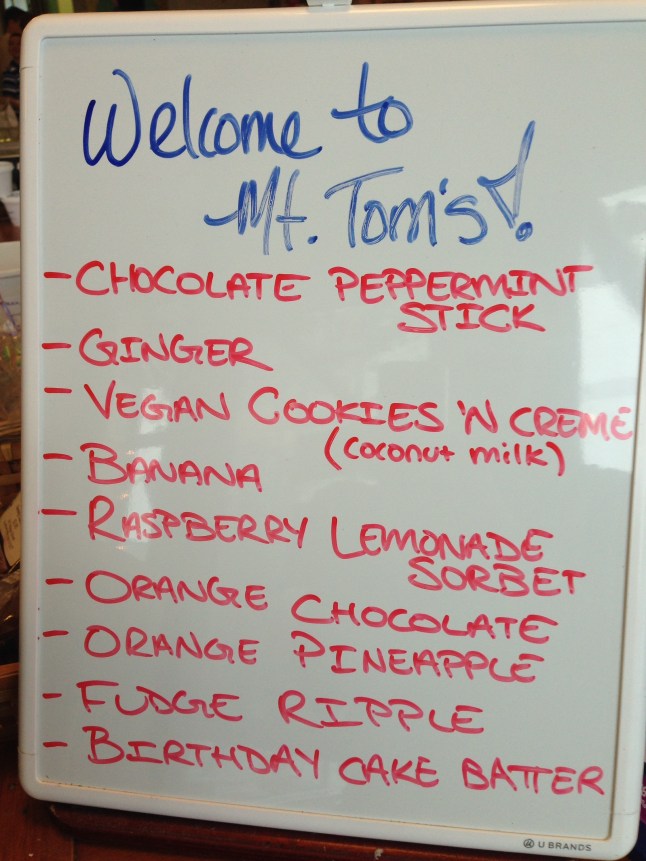 Welcome to
Mt. Tom's!
- CHOCOLATE PEPPERMINT
STICK
- GINGER
- VEGAN COOKIES 'N CREME
(coconut milk)
- BANANA
- RASPBERRY LEMONADE
SORBET
- ORANGE CHOCOLATE
- ORANGE PINEAPPLE
- FUDGE RIPPLE
- BIRTHDAY CAKE BATTER
U BRANDS